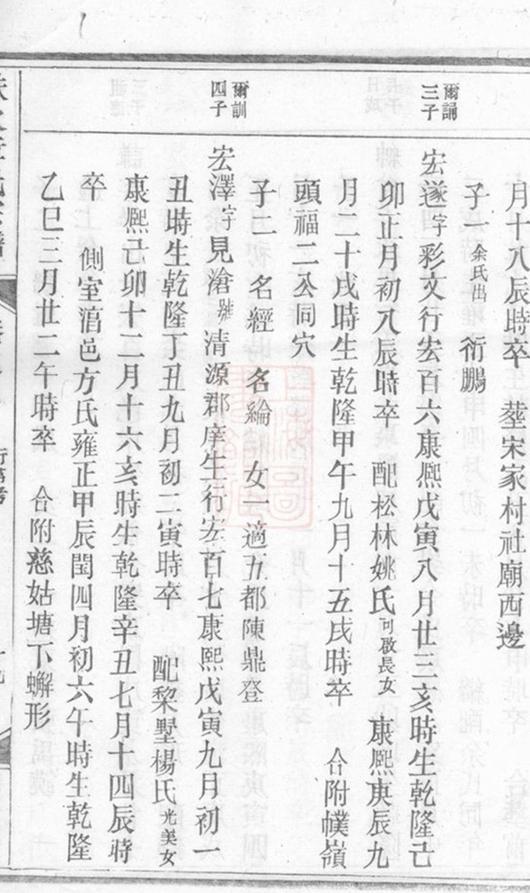 月十八辰時卒　塟宋家村社廟西邊
子一余氏出　衎鵬
爾誦三子
宏遂字彩文行宏百六康熙戊寅八月廿三亥時生乾隆己
卯正月初八辰時卒　配松林姚氏可啟長女　康熙庚辰九
月二十戌時生乾隆甲午九月十五戌時卒　合附幞嶺
頭福二公同穴
子二　名經　名綸　女一適五都陳鼎登
爾訓四子
宏澤字見滄號清源郡庠生行宏百七康熙戊寅九月初一
丑時生乾隆丁丑九月初二寅時卒　配黎墅楊氏光美女
康熙己卯十二月十六亥時生乾隆辛丑七月十四辰時
卒　側室湻邑方氏雍正甲辰閏四月初六午時生乾隆
乙巳三月廿二午時卒　合附慈姑塘下蠏形
行第考